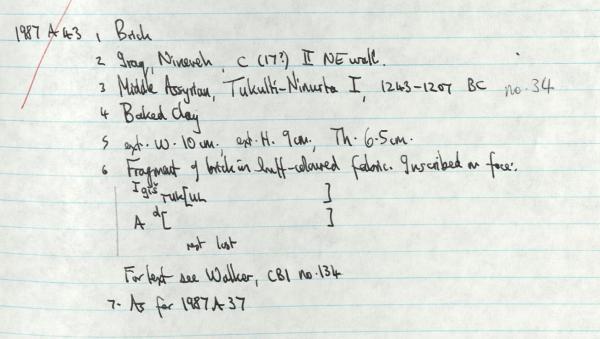 1987 A 43 1 Brick
2 Iraq, Nineveh, C (17?) II NE wall.
3 Middle Assyrian, Tukulti-Ninurta I, 1243-1207 BC no. 34
4 Baked clay
5 ext. W. 10 cm, ext. H. 9 cm, Th. 6.5 cm.
6 Fragment of brick in buff-coloured fabric. Inscribed on face:
I giš TUK[UL ]
A d[ ]
rest lost
For text see Walker, CBI no. 134
7. As for 1987 A 37